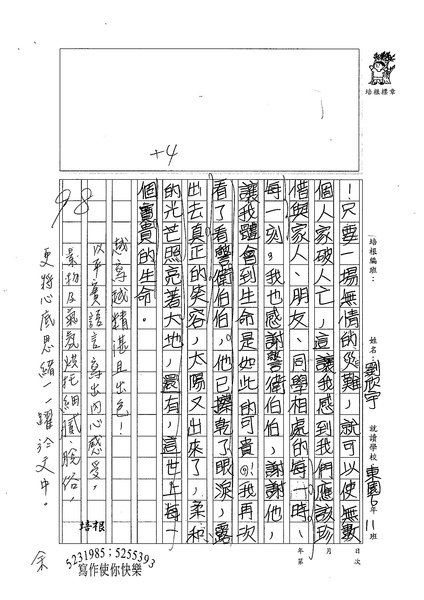 培根標章
培根編班：
姓名：劉欣宇
就讀學校 東國 6 年 11 班
年 月 日
第 次
！只要一場無情的災難，就可以使無數
個人家破人亡，這讓我感到我們應該珍
惜與家人、朋友、同學相處的每一時、
每一刻。我也感謝警衛伯伯，謝謝他，
讓我體會到生命是如此的可貴。我再次
看了看警衛伯伯，他已擦乾了眼淚，露
出去真正的笑容，太陽又出來了，柔和
的光芒照亮著大地，還有，這世上每一
個寶貴的生命。
+4
98
越寫越精湛且出色！
以平實語言寫出內心感受，
景物及氣氛烘托細膩、脫俗，
更將心底思緒一一躍於文中。
余
培根
5231985；5255393
寫作使你快樂